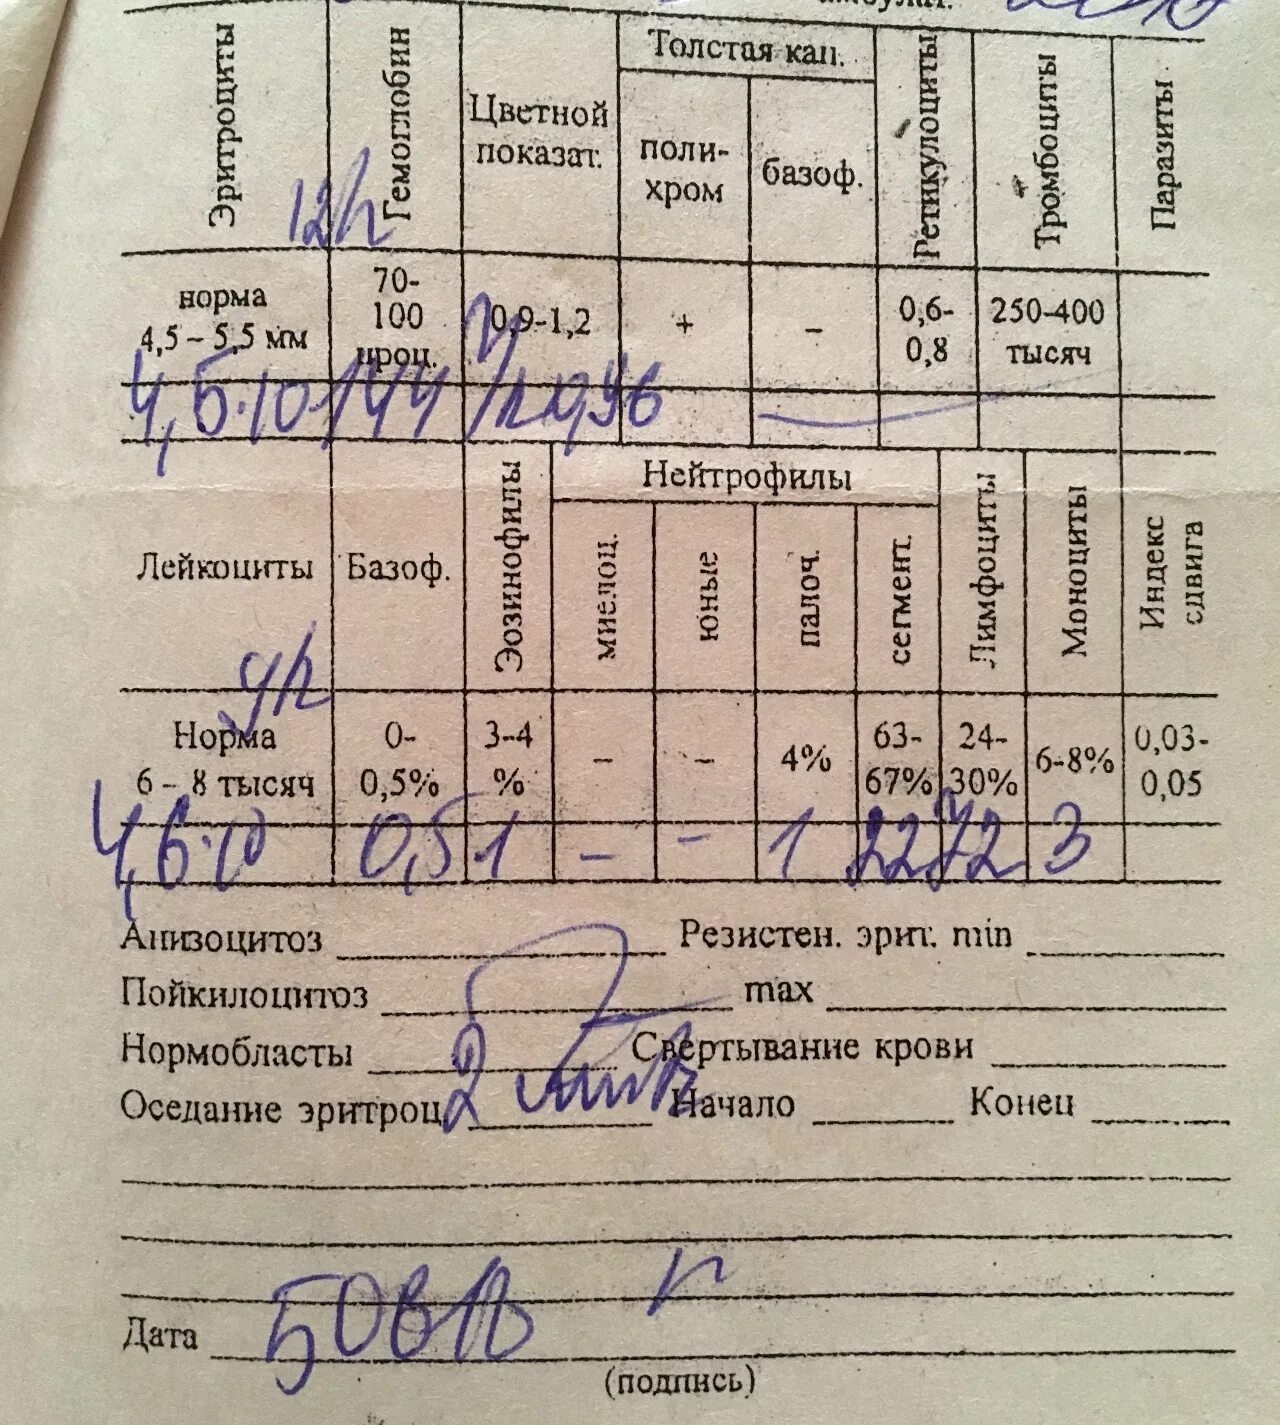 Толстая кап.
Эритроциты Гемоглобин Цветной показат. поли-хром базоф. Ретикулоциты Тромбоциты Паразиты
12/л
норма 4,5 – 5,5 мм 70-100 проц. 0,9-1,2 + – 0,6-0,8 250-400 тысяч
4,5·10 144 г/л 0,96
Нейтрофилы
Лейкоциты Базоф. Эозинофилы миелоц. юные палоч. сегмент. Лимфоциты Моноциты Индекс сдвига
9/л
Норма 6 – 8 тысяч 0-0,5% 3–4 % – – 4% 63-67% 24-30% 6-8% 0,03-0,05
4,6·10 0,5 1 – – 1 22 72 3
Анизоцитоз Резистен. эрит. min
Пойкилоцитоз max
Нормобласты Свертывание крови
Оседание эритроц. 2 Начало Конец
Дата
(подпись)